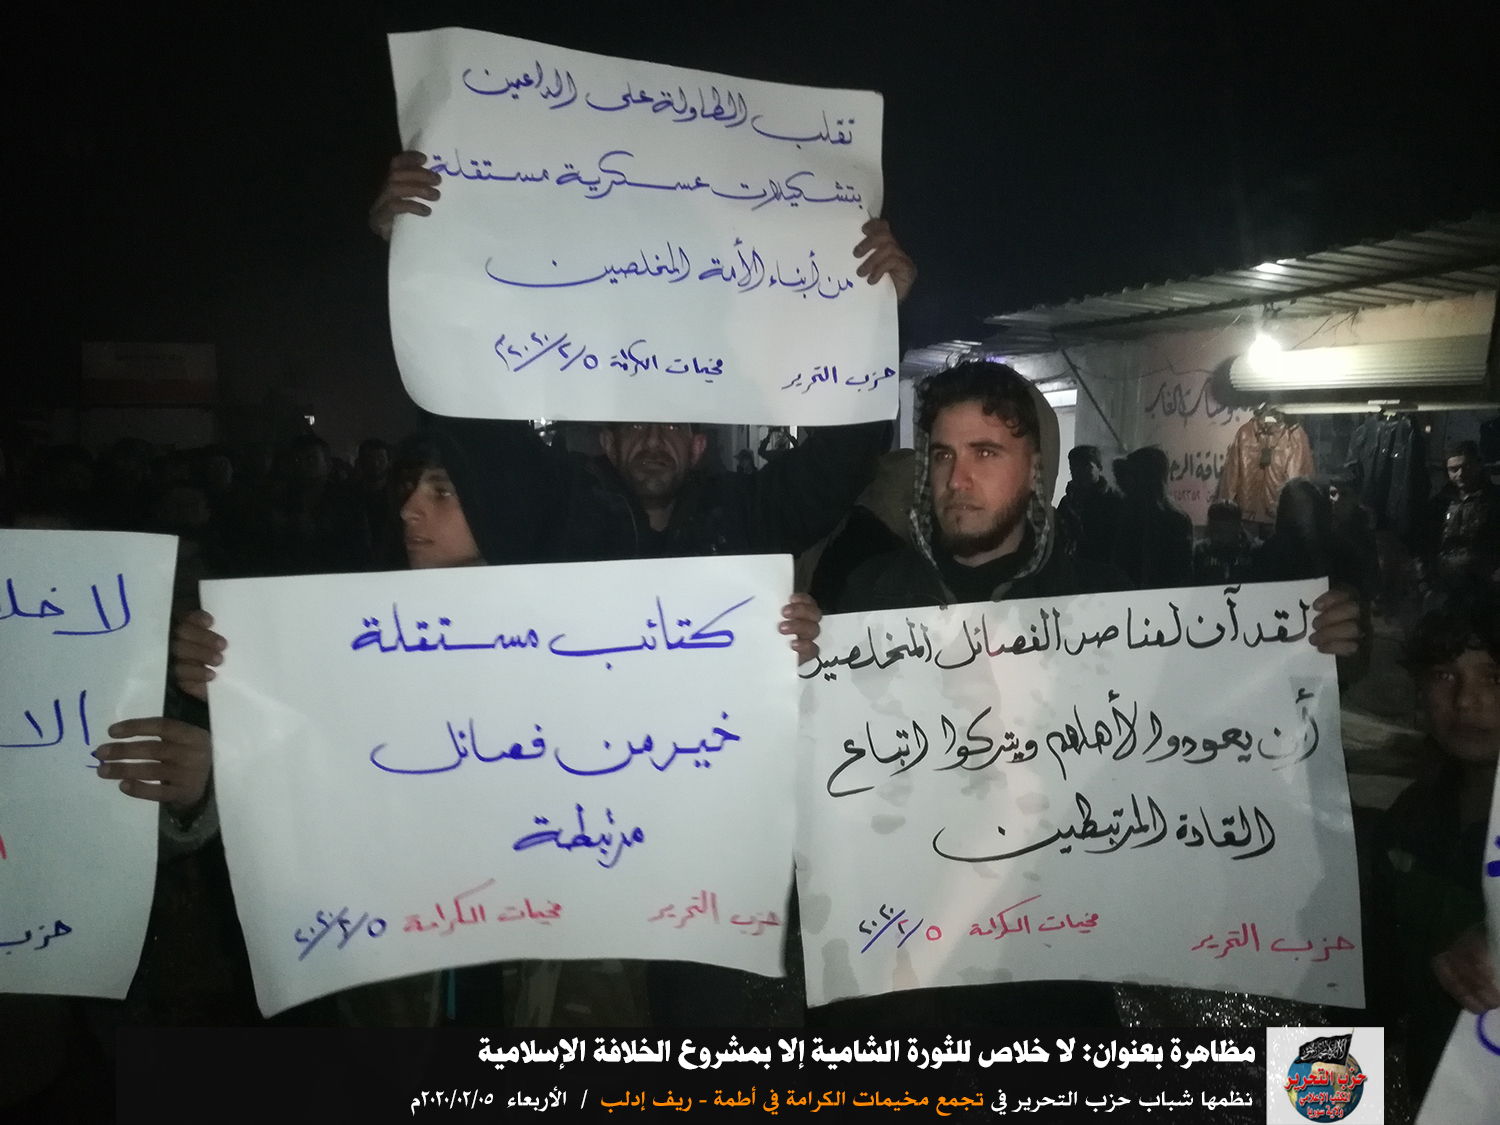 تقلب الطاولة على الداعين
بتشكيلات عسكرية مستقلة
من أبناء الأمة المخلصين
حزب التحرير مخيمات الكرامة ٢٠٢٠/٢/٥م
لا خلا
إلا
حزب
كتائب مستقلة
خير من فصائل
مرتبطة
حزب التحرير مخيمات الكرامة ٢٠٢٠/٢/٥
لقد آن لعناصر الفصائل المخلصين
أن يعودوا لأهلهم ويتركوا اتباع
القادة المرتبطين
حزب التحرير مخيمات الكرامة ٢٠٢٠/٢/٥
مظاهرة بعنوان: لا خلاص للثورة الشامية إلا بمشروع الخلافة الإسلامية
نظمها شباب حزب التحرير في تجمع مخيمات الكرامة في أطمة - ريف إدلب / الأربعاء ٢٠٢٠/٠٢/٠٥م
حزب التحرير
المكتب الإعلامي
ولاية سوريا